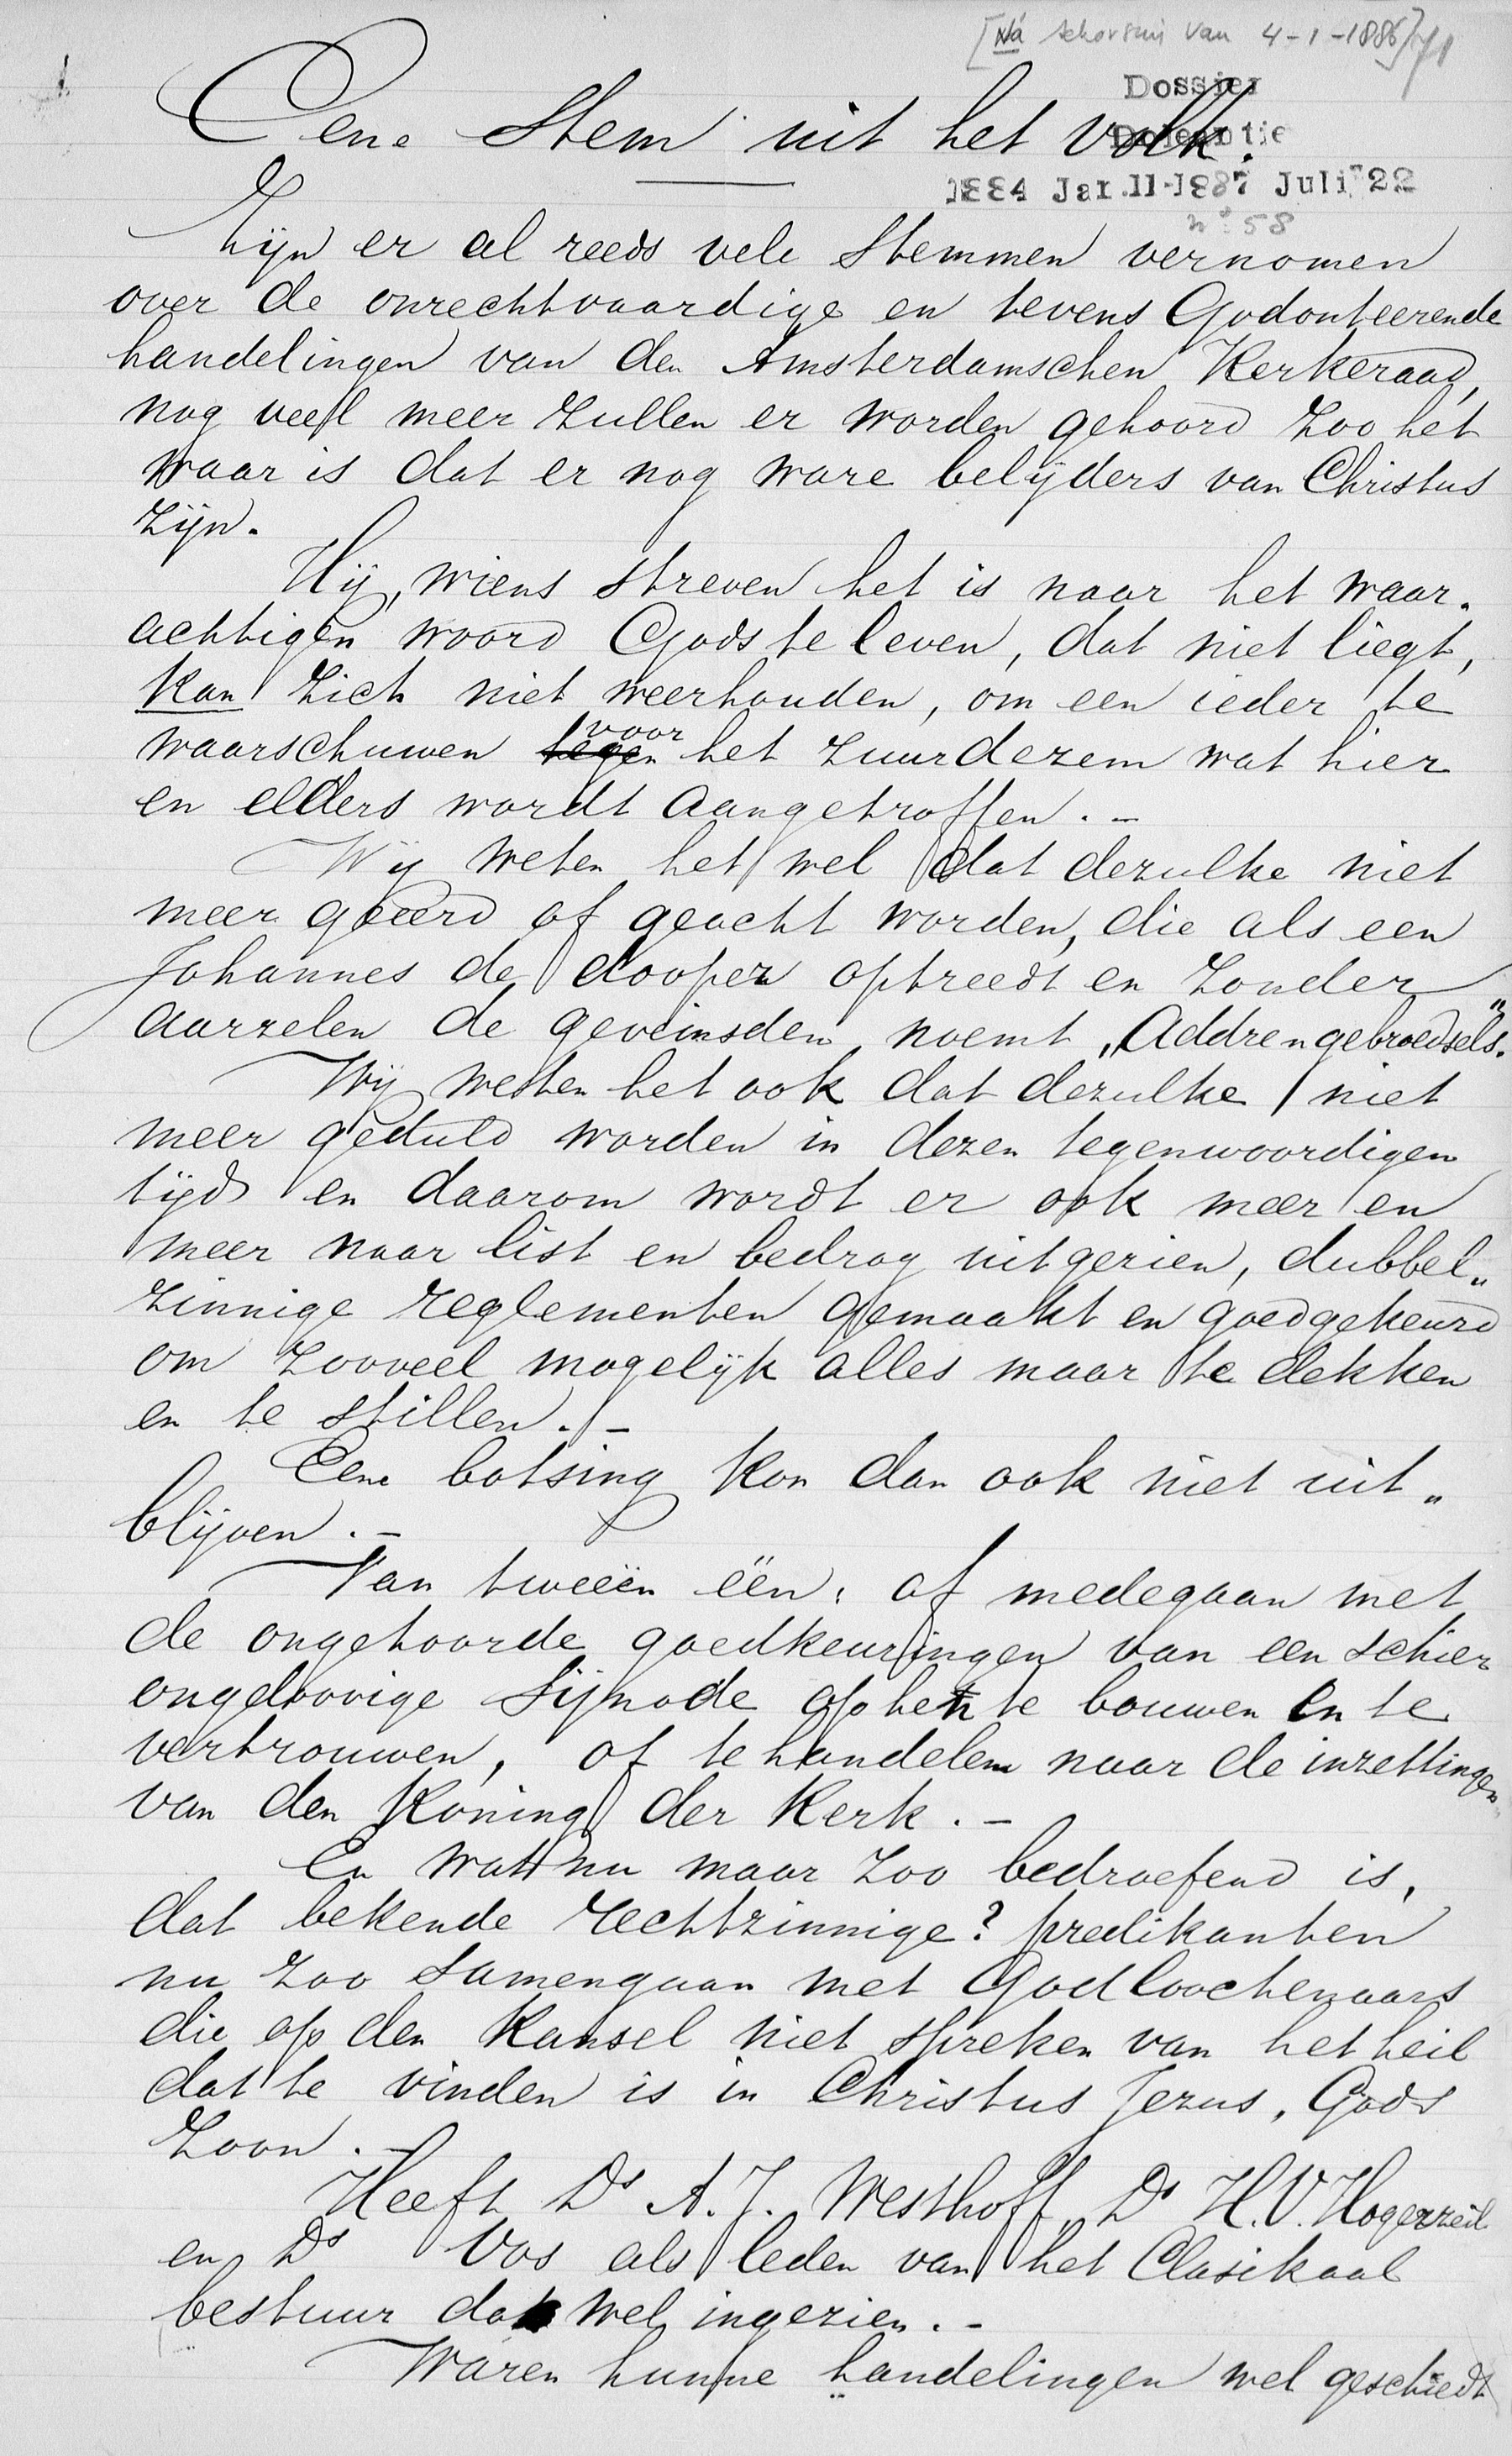 [Ná schorsing van 4-1-1886] 71
Dossier
Doleantie
1884 Jan.11-1887 Juli 22
no 58
Eene Stem uit het volk.
Zijn er al reeds vele Stemmen vernomen
over de onrechtvaardige en tevens Godonteerende
handelingen van den Amsterdamschen Kerkeraad,
nog veel meer zullen er worden gehoord zoo het
waar is dat er nog ware belijders van Christus
zijn.
Hij, wiens streven het is naar het waar„
achtigen woord Gods te leven, dat niet liegt,
kan zich niet weerhouden, om een ieder te
waarschuwen tegen voor het zuurdezem wat hier
en elders wordt aangetroffen. –
Wij weten het wel dat dezulke niet
meer geëerd of geacht worden, die als een
Johannes de dooper optreedt en zonder
aarzelen de geveinsden noemt „Addrengebroedsels."
Wij weten het ook dat dezulke niet
meer geduld worden in dezen tegenwoordigen
tijd en daarom wordt er ook meer en
meer naar list en bedrog uitgezien, dubbel„
zinnige reglementen gemaakt en goedgekeurd
om zooveel mogelijk alles maar te dekken
en te stillen. –
Eene botsing kon dan ook niet uit„
blijven. –
Van tweeën ëën, of medegaan met
de ongehoorde goedkeuringen van een schier
ongeloovige Sijnode op hen te bouwen en te
vertrouwen, of te handelen naar de inzettingen
van den Koning der Kerk. –
En wat nu maar zoo bedroefend is,
dat bekende rechtzinnige? predikanten
nu zoo samengaan met Godloochenaars
die op den Kansel niet spreken van het heil
dat te vinden is in Christus Jezus, Gods
Zoon. –
Heeft Ds A. J. Westhoff, Ds H. V. Hogerzeil
en Ds Vos als leden van het Clasikaal
bestuur dat wel ingezien. –
Waren hunne handelingen wel geschiedt